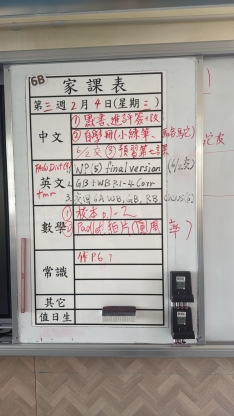 6B 家課表
第三週2月4日(星期二)
中文 ①默書、進評簽+改
②自學冊(小練筆、
6/2交 ③預習第七課
英文 1. WP(5) final version (6/2交)
2. GB+WB P.1-4 Corr
3. 交回 6A WB, GB, RB
tmr
數學 ① 校本 p.1-2
② Padlet 拍片(圓周率)
常識 作P6
其它
值日生